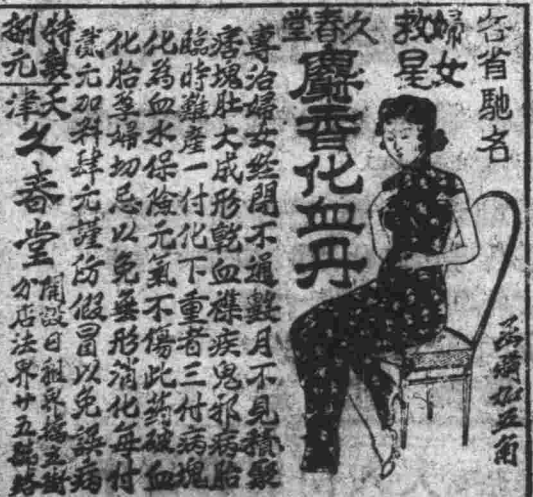 各省馳名
婦女
救星
久春堂
麝香化血丹
函購加五角
專治婦女經閉不通數月不見積聚
痞塊肚大成形乾血癆疾鬼邪病胎
臨時難產一付化下重者三付病塊
化為血水保險元氣不傷此葯破血
化胎孕婦切忌以免無形消化每付
貳元加料肆元謹防假冒以免誤病
特製
捌元
天津久春堂
開設日租界橋立街
分店法界廿五號路